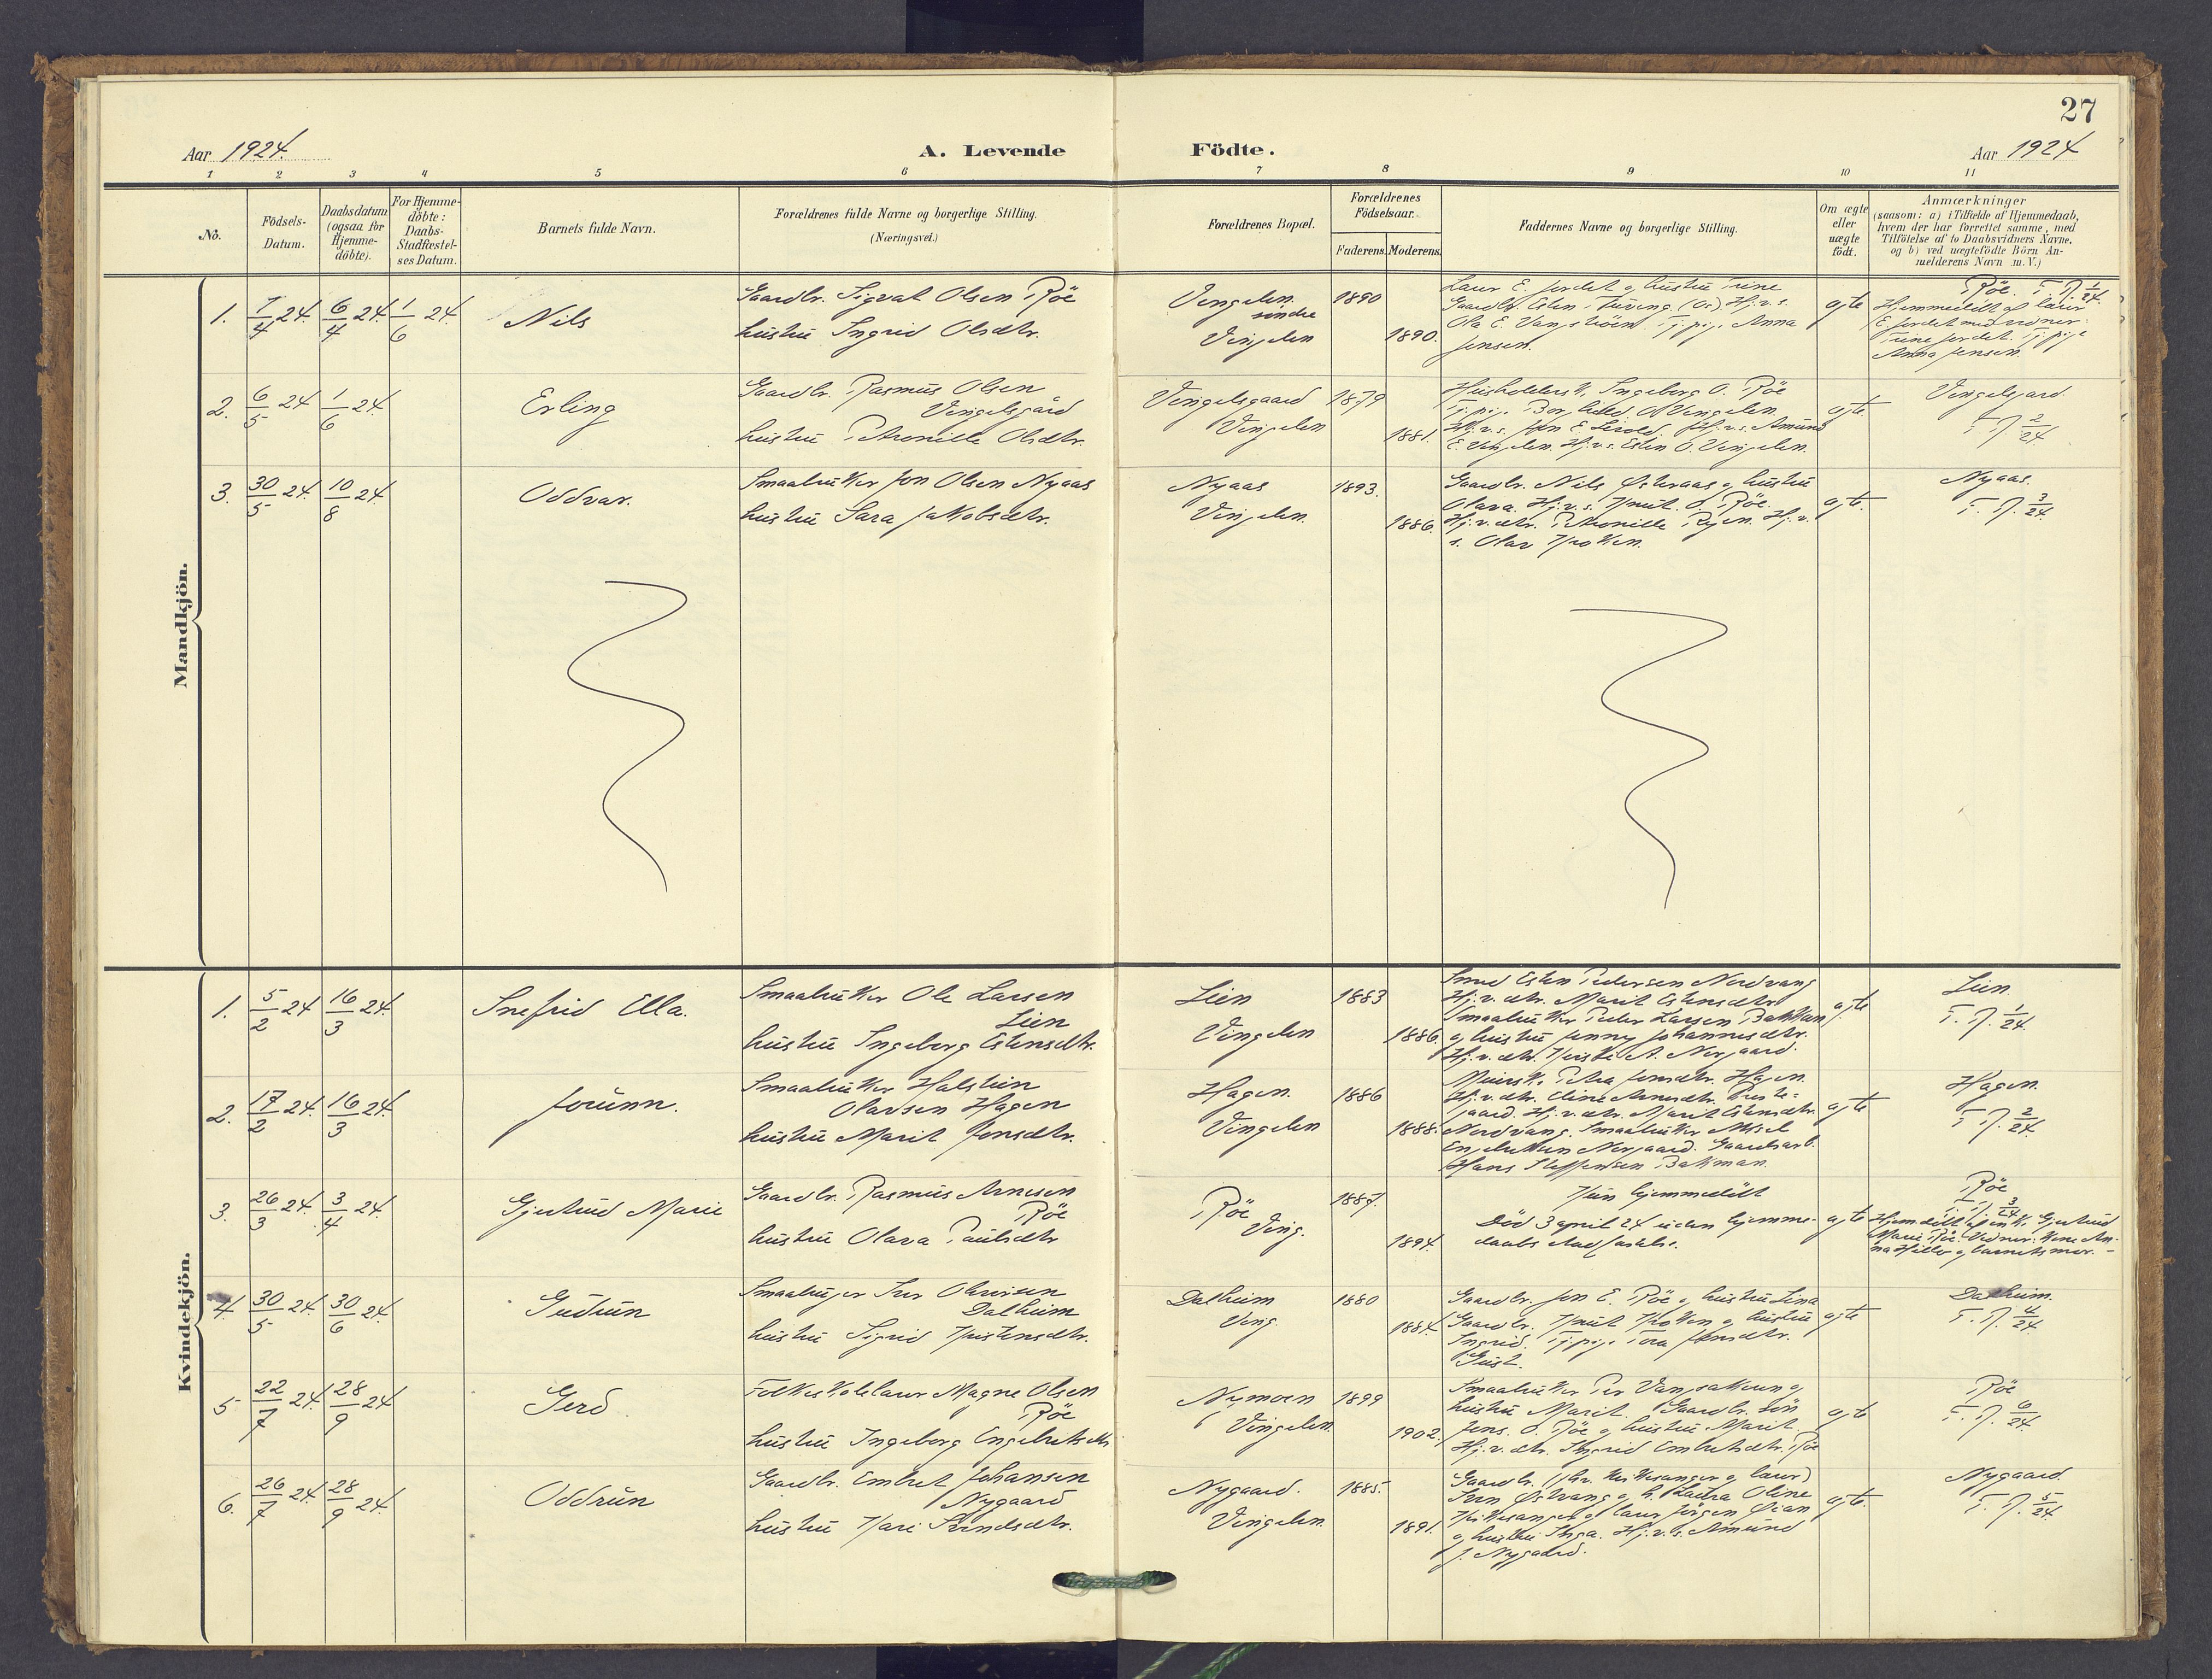 27
Aar 1924.
A. Levende
Födte.
Aar 1924
1 2 3 4 5 6 7 8 9 10 11
No.
Födsels-Datum.
Daabsdatum (ogsaa for Hjemme-döbte).
For Hjemme-döbte: Daabs-Stadfæstel-ses Datum.
Barnets fulde Navn.
Forældrenes fulde Navne og borgerlige Stilling.
(Næringsvei.)
Forældrenes Bopæl.
Forældrenes Födselsaar.
Faderens. Moderens.
Faddernes Navne og borgerlige Stilling.
Om ægte eller uægte födt.
Anmærkninger
(saasom: a) i Tilfælde af Hjemmedaab,
hvem der har forrettet samme, med
Tilföielse af to Daabsvidners Navne,
og b) ved uægtefödte Börn An-
melderens Navn m. V.)
Mandkjön.
1. 7/4 24. 6/4 24. 1/6 24.
Nils
Gaardbr. Sigvat Olsen Röe
hustru Ingrid Olsdtr.
Vingelen
söndre
Vingelen
1890
1890.
Laur E. Jordet og hustru Trine
Ola E. Vangsköien. Tj.pige Anna
Jensen.
egte
Röe. F. R. 1/24.
Hjemmedöbt af laur
E. Jordet med vidner:
Trine Jordet. Tj.pige
Anna Jensen.
2. 6/5 24 1/6 24
Erling
Gaardbr. Rasmus Olsen
Vingelsgård
hustru Petronille Olsdtr.
Vingelsgaard
Vingelen
1879
1881.
Husholdersk. Ingeborg O. Röe
Tj.pige Borghild O. Vingelen.
E. Vingelen. Hj.v.s. Esten O. Vingelen.
egte
Vingelsgaard
F. R. 2/24
3. 30/5 24. 10/8 24
Oddvar.
Smaabruker Jon Olsen Nyaas
hustru Sara Jakobsdtr.
Nyaas
Vingelen.
1893.
1886.
Gaardbr. Nils Østeraas og hustru
Olava. Hj.v.s. Knut O. Röe.
Hj.v.dtr. Petronille Rejen. Hj.v.
s. Olav Kroken.
egte.
Nyaas.
F. R. 3/24.
Kvindekjön.
1. 5/2 24 16/3 24.
Snefrid Ella.
Smaabruker Ole Larsen
Lien
hustru Ingeborg Estensdtr.
Lien
Vingelen
1883
1886.
Smed Esten Pedersen Nordvang
Hj.v.dtr. Marit Estensdtr.
Smaabruker Peder Larsen Bakken
og hustru Jenny Johannesdtr.
egte
Lien.
F. R. 1/24.
2. 17/2 24. 16/3 24.
Jorunn.
Smaabruker Halstein
Olavsen Hagen
hustru Marit Jonsdtr.
Hagen.
Vingelen
1886
1888.
Meiersk. Petra Jonsdtr. Hagen.
Hj.v.dtr. Eline Arnesdtr. Preste-
gaard. Hj.v.dtr. Marit Estensdtr.
Nordvang. Smaabruker
Hans Steffensen Bakman.
egte
Hagen.
F. R. 2/24.
3. 26/3 24. 3/4 24.
Gjertrud Marie
Gaardbr. Rasmus Arnesen
Röe
hustru Olava Paulsdtr
Röe
Ving.
1887.
1894.
Kun hjemmedöbt
Död 3 april 24 uden hjemme-
daabs stadfæstelse.
egte
Röe
F. R. 3/24
4. 30/5 24. 30/6 24.
Gudrun
Smaabruger Iver Olavsen
Dalheim
hustru Sigrid Kristensdtr.
Dalheim
Ving.
1880
1884.
Gaardbr. Jon E. Röe og hustru Lina
Gaardbr. Knut Kroken og hustru
Ingrid. Tj.pige Tora Jonsdtr.
egte
Dalheim.
F. R. 4/24.
5 22/7 24. 28/9 24
Gerd
Folkeskolelærer Magne Olsen
Röe
hustru Ingeborg Engebretsdtr
Nymoen
Vingelen.
1899
1902.
hustru Marit. Gaardbr. sön
Jens O. Röe og hustru Marit.
Hj.v.dtr. Ingrid Embretsdtr. Röe
egte
Röe
F. R. 6/24.
6. 26/7 24. 28/9 24.
Oddrun
Gaardbr. Embret Johansen
Nygaard
hustru Kari Svendsdtr.
Nygaard.
Vingelen.
1885.
1891.
Kirkesanger og lærer Jörgen Öian
og hustru Inga. Hj.v.s. Amund
J. Nygaard.
egte.
Nygaard.
F. R. 5/24.